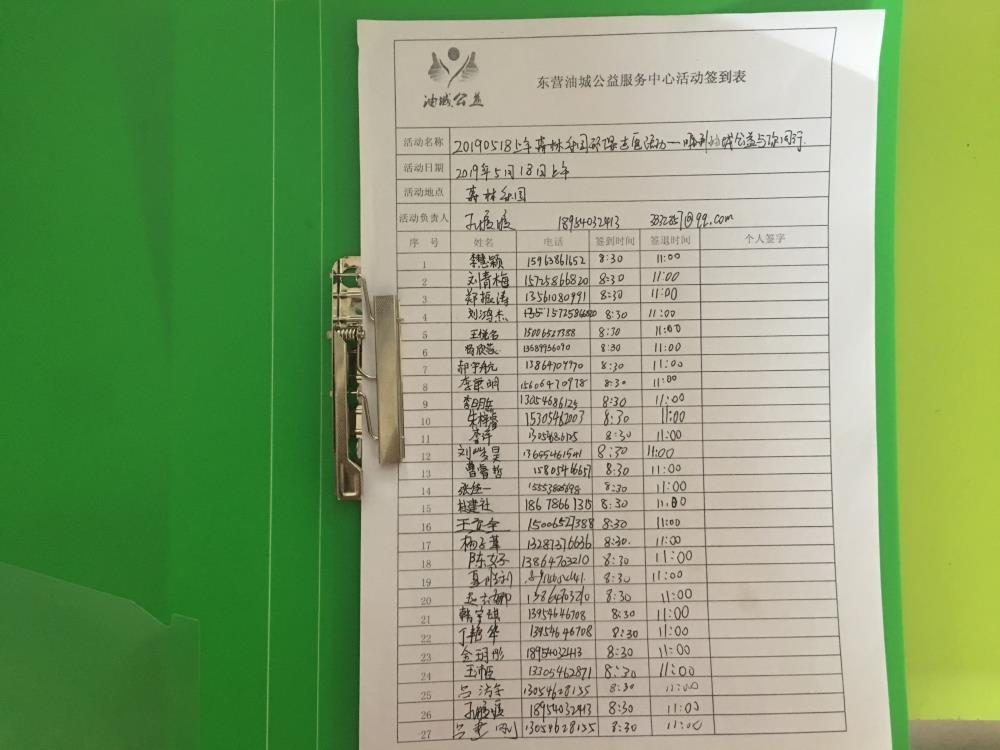 油城公益
东营油城公益服务中心活动签到表
活动名称 20190518上午森林公园环保志愿活动—胜利油城公益与你同行
活动日期 2019年5月18日上午
活动地点 森林公园
活动负责人 18954032413 @qq.com
序号 姓名 电话 签到时间 签退时间 个人签字
1 李慧颖 15963861652 8:30 11:00
2 刘青梅 15725866820 8:30 11:00
3 郑振涛 13561080991 8:30 11:00
4 刘鸿杰 8:30 11:00
5 15006527388 8:30 11:00
6 8:30 11:00
7 郝宇航 13864709970 8:30 11:00
8 李景明 15606470978 8:30 11:00
9 李明岳 13054686125 8:30 11:00
10 朱梓睿 15305462003 8:30 11:00
11 李洋 8:30 11:00
12 8:30 11:00
13 曹睿哲 15805446657 8:30 11:00
14 8:30 11:00
15 杜建社 18678661315 8:30 11:00
16 15006527388 8:30 11:00
17 杨子菁 13287376636 8:30 11:00
18 13864703210 8:30 11:00
19 8:30 11:00
20 13864703210 8:30 11:00
21 13954646708 8:30 11:00
22 丁艳华 13954646708 8:30 11:00
23 金玥彤 18954032413 8:30 11:00
24 13305462871 8:30 11:00
25 13054628155 8:30 11:00
26 18954032413 8:30 11:00
27 13054628155 8:30 11:00